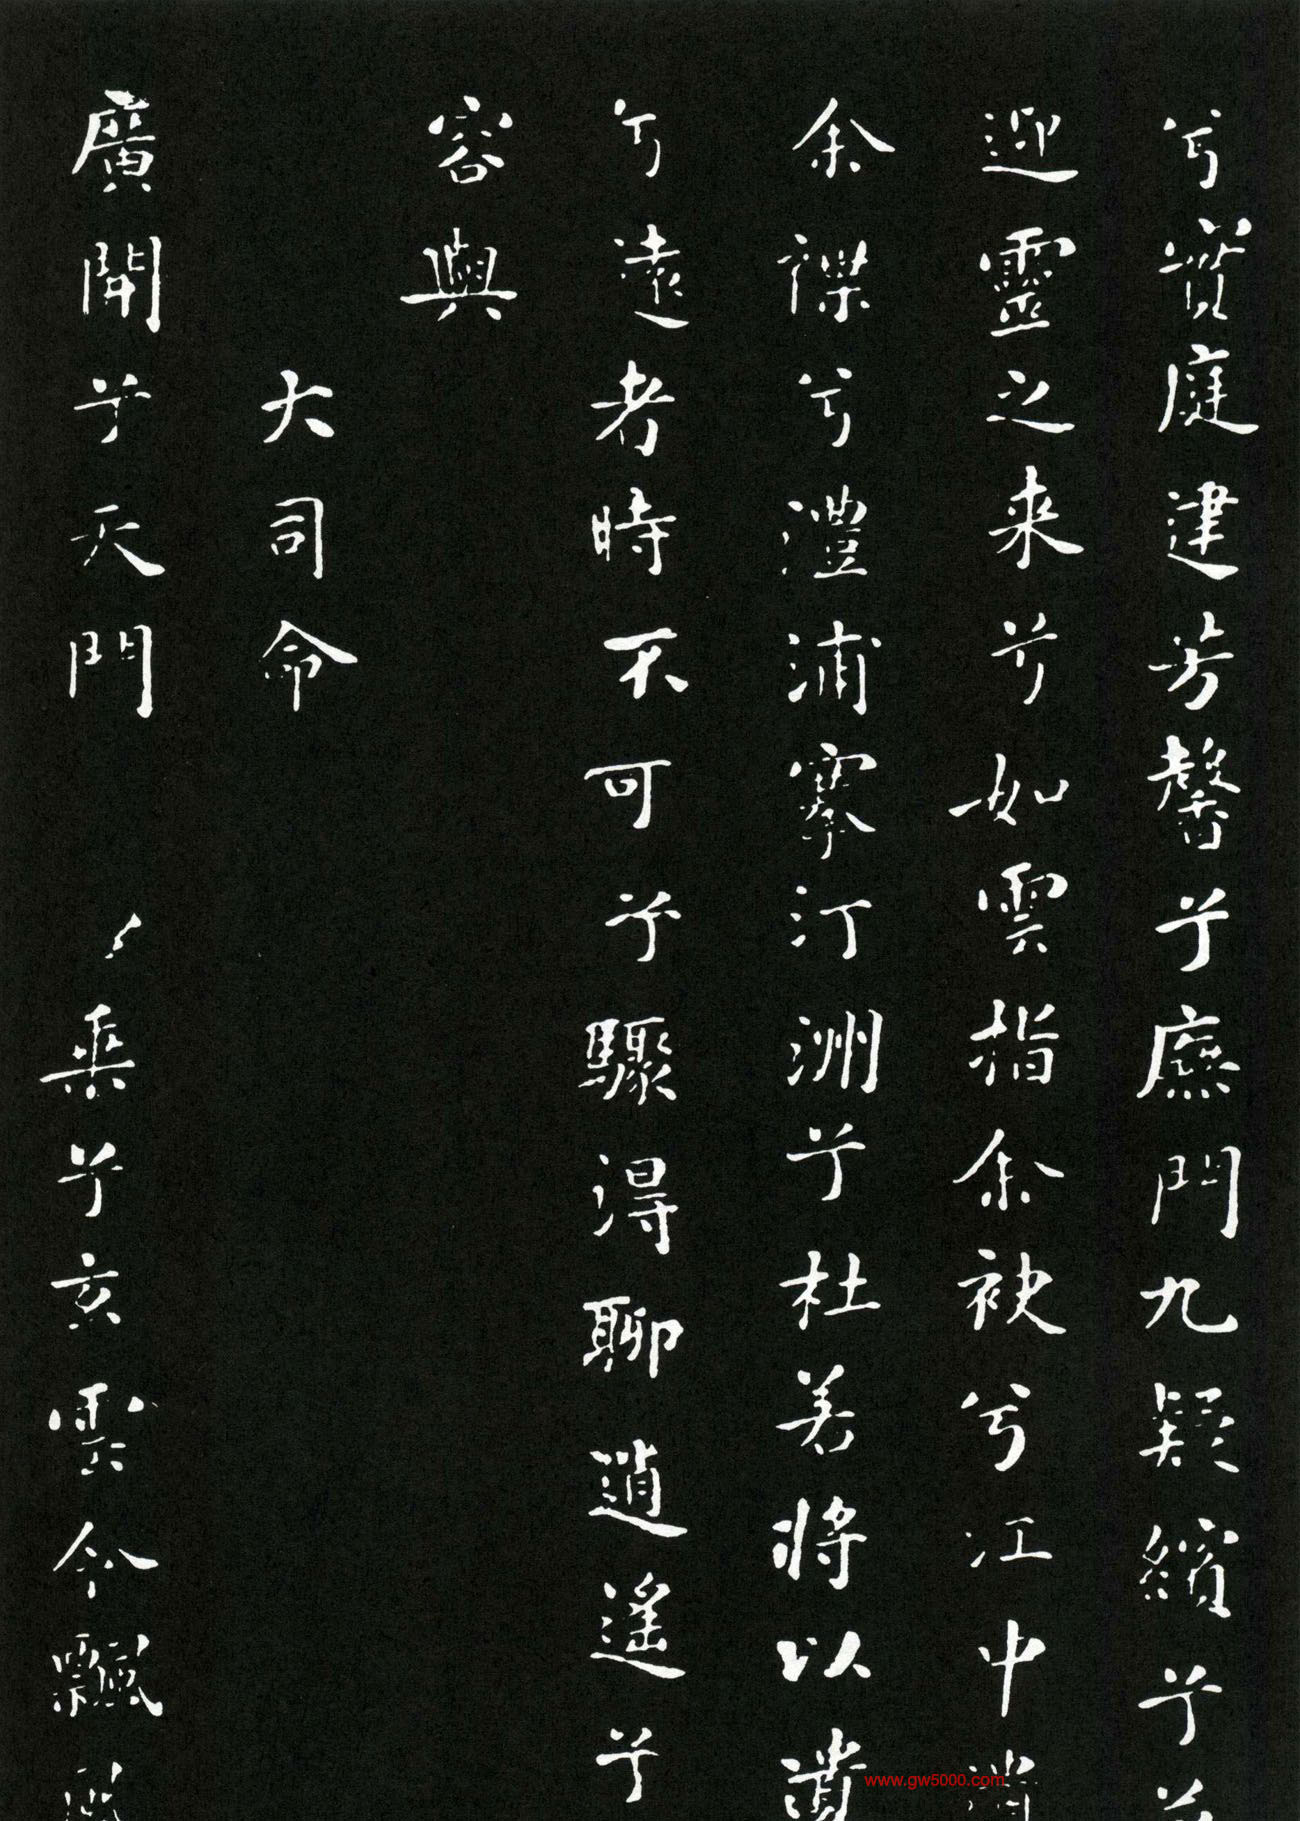 兮實庭建芳馨兮廡門九疑繽兮並
迎靈之来兮如雲指余袂兮江中遺
余褋兮澧浦搴汀洲兮杜若將以遺
兮遠者時不可兮驟淂聊逍遙兮
容與
大司命
廣開兮天門 乗兮玄雲令飄風
www.gw5000.com